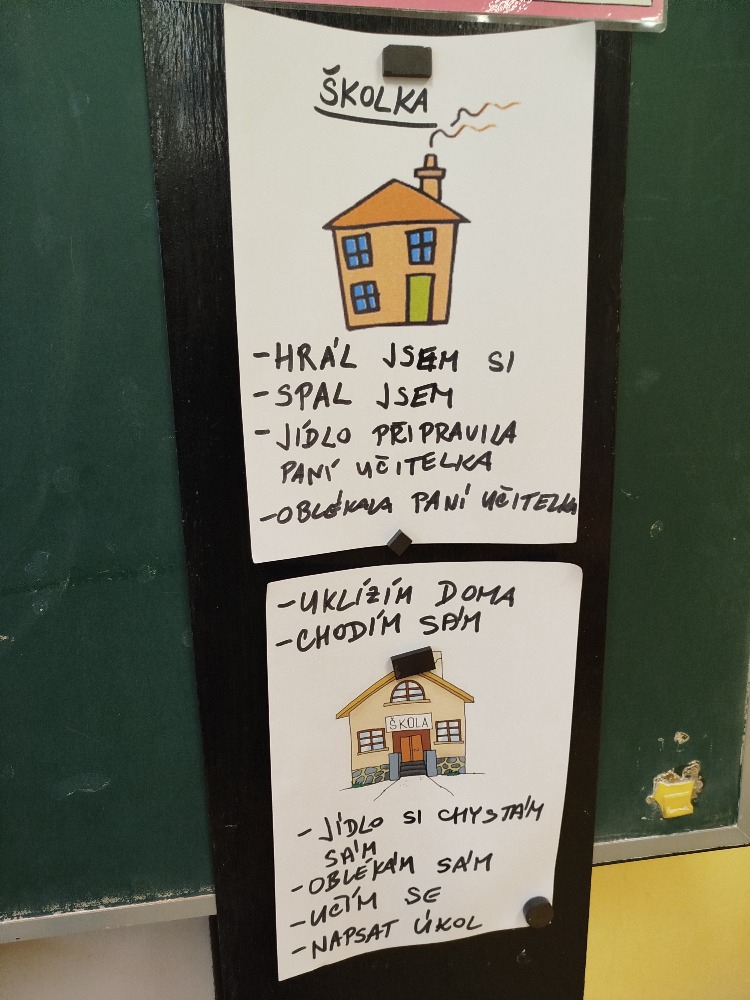 ŠKOLKA
-HRÁL JSEM SI
-SPAL JSEM
-JÍDLO PŘIPRAVILA
PANÍ UČITELKA
-OBLÉKALA PANÍ UČITELKA
-UKLÍZÍM DOMA
-CHODÍM SÁM
ŠKOLA
- JÍDLO SI CHYSTÁM
SÁM
-OBLÉKÁM SÁM
-UČÍM SE
-NAPSAT ÚKOL